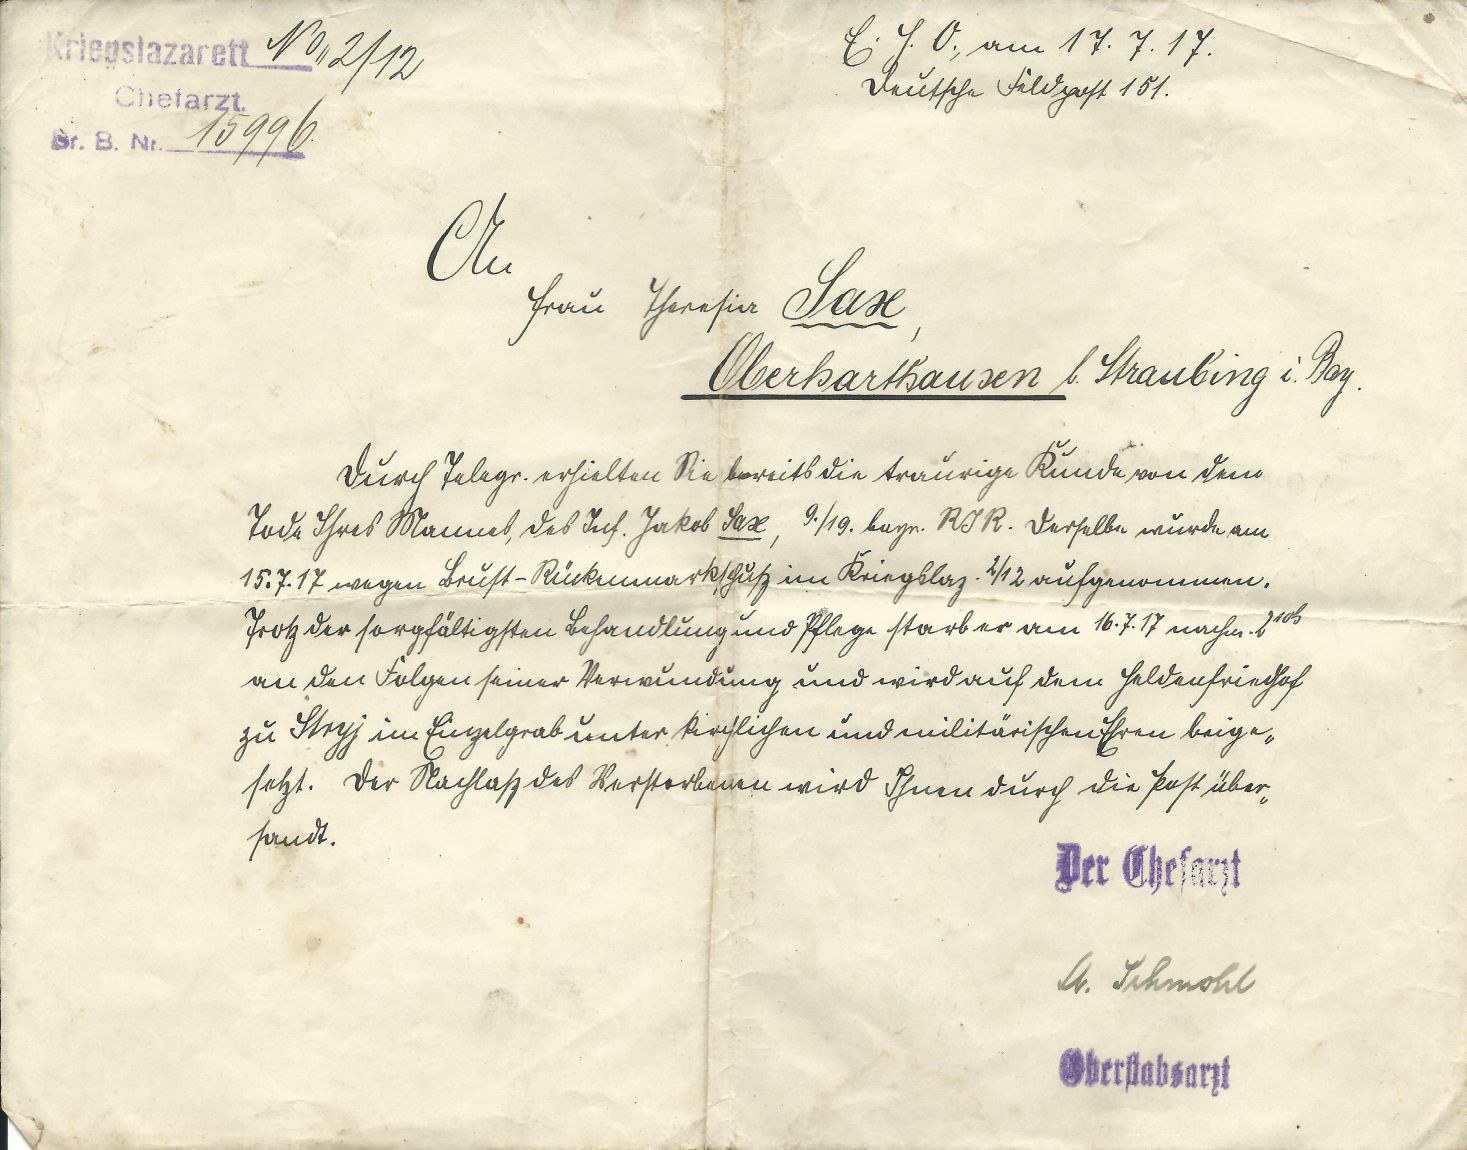 Kriegslazarett No. 2/12
Chefarzt.
Br. B. Nr. 15996.
E. H. O., am 17. 7. 17.
Deutsche Feldpost 151.
An
Frau Theresia Sax,
Oberharthausen b. Straubing i. Bay.
Durch Telegr. erhielten Sie bereits die traurige Kunde von dem
Tode Ihres Mannes, des Inf. Jakob Sax, 9./19. bayr. RIR. Derselbe wurde am
15.7.17 wegen Brust-Rückenmarkschuß im Kriegslaz. 2/12 aufgenommen.
Trotz der sorgfältigsten Behandlung und Pflege starb er am 16.7.17 nachm.
an den Folgen seiner Verwundung und wird auf dem Heldenfriedhof
zu Stryj im Einzelgrab unter kirchlichen und militärischen Ehren beige-
setzt. Der Nachlaß des Verstorbenen wird Ihnen durch die Post über-
sandt.
Der Chefarzt
A. Schmohl
Oberstabsarzt